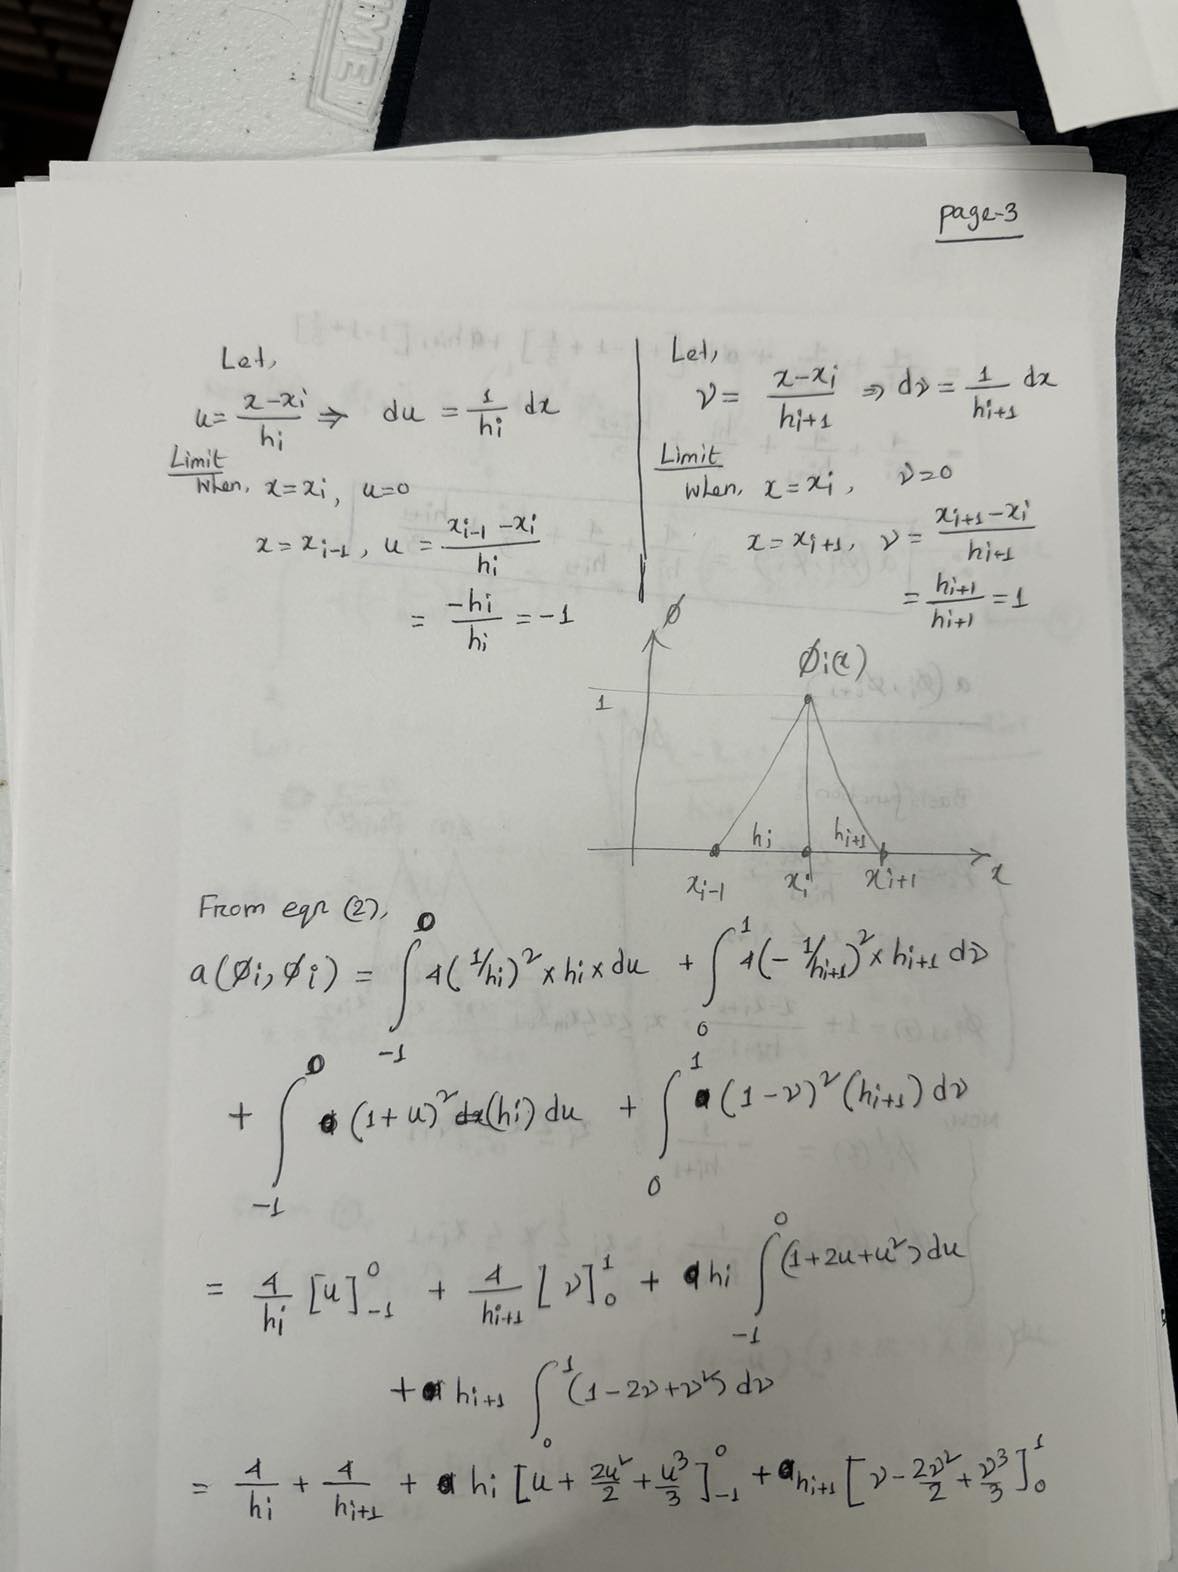 IME
page-3
Let,
u = (x-xi)/hi ⇒ du = 1/hi dx
Limit
when, x = xi, u=0
x = xi-1, u = (xi-1 - xi)/hi
= -hi/hi = -1
Let,
ν = (x-xi)/hi+1 ⇒ dν = 1/hi+1 dx
Limit
when, x = xi, ν=0
x = xi+1, ν = (xi+1 - xi)/hi+1
= hi+1/hi+1 = 1
Ø
Øi(x)
1
hi hi+1
xi-1 xi xi+1 x
From eqn (2),
a(Øi, Øi) = ∫_{-1}^{0} 4(1/hi)² × hi × du + ∫_{0}^{1} 4(-1/hi+1)² × hi+1 dν
+ ∫_{-1}^{0} a(1+u)² (hi) du + ∫_{0}^{1} a(1-ν)² (hi+1) dν
= 4/hi [u]_{-1}^{0} + 4/hi+1 [ν]_{0}^{1} + a hi ∫_{-1}^{0} (1+2u+u²) du
+ a hi+1 ∫_{0}^{1} (1-2ν+ν²) dν
= 4/hi + 4/hi+1 + a hi [u + 2u²/2 + u³/3]_{-1}^{0} + a hi+1 [ν - 2ν²/2 + ν³/3]_{0}^{1}